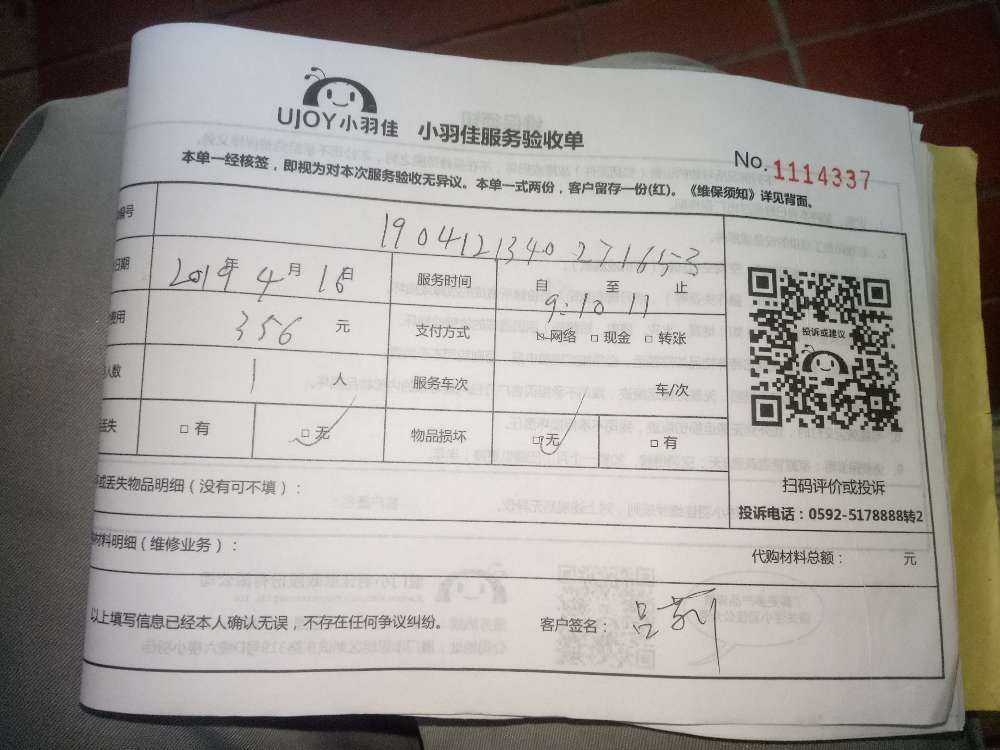 UJOY小羽佳 小羽佳服务验收单
No.1114337
本单一经核签，即视为对本次服务验收无异议。本单一式两份，客户留存一份(红)。《维保须知》详见背面。
编号 190412134027165
日期 2019年4月16日 服务时间 自 至 止 9:10 11
费用 356元 支付方式 网络 □现金 □转账
人数 1人 服务车次 车/次
丢失 □有 □无 物品损坏 □无 □有
投诉或建议
扫码评价或投诉
投诉电话：0592-5178888转2
或丢失物品明细（没有可不填）：
材料明细（维修业务）： 代购材料总额： 元
以上填写信息已经本人确认无误，不存在任何争议纠纷。 客户签名：